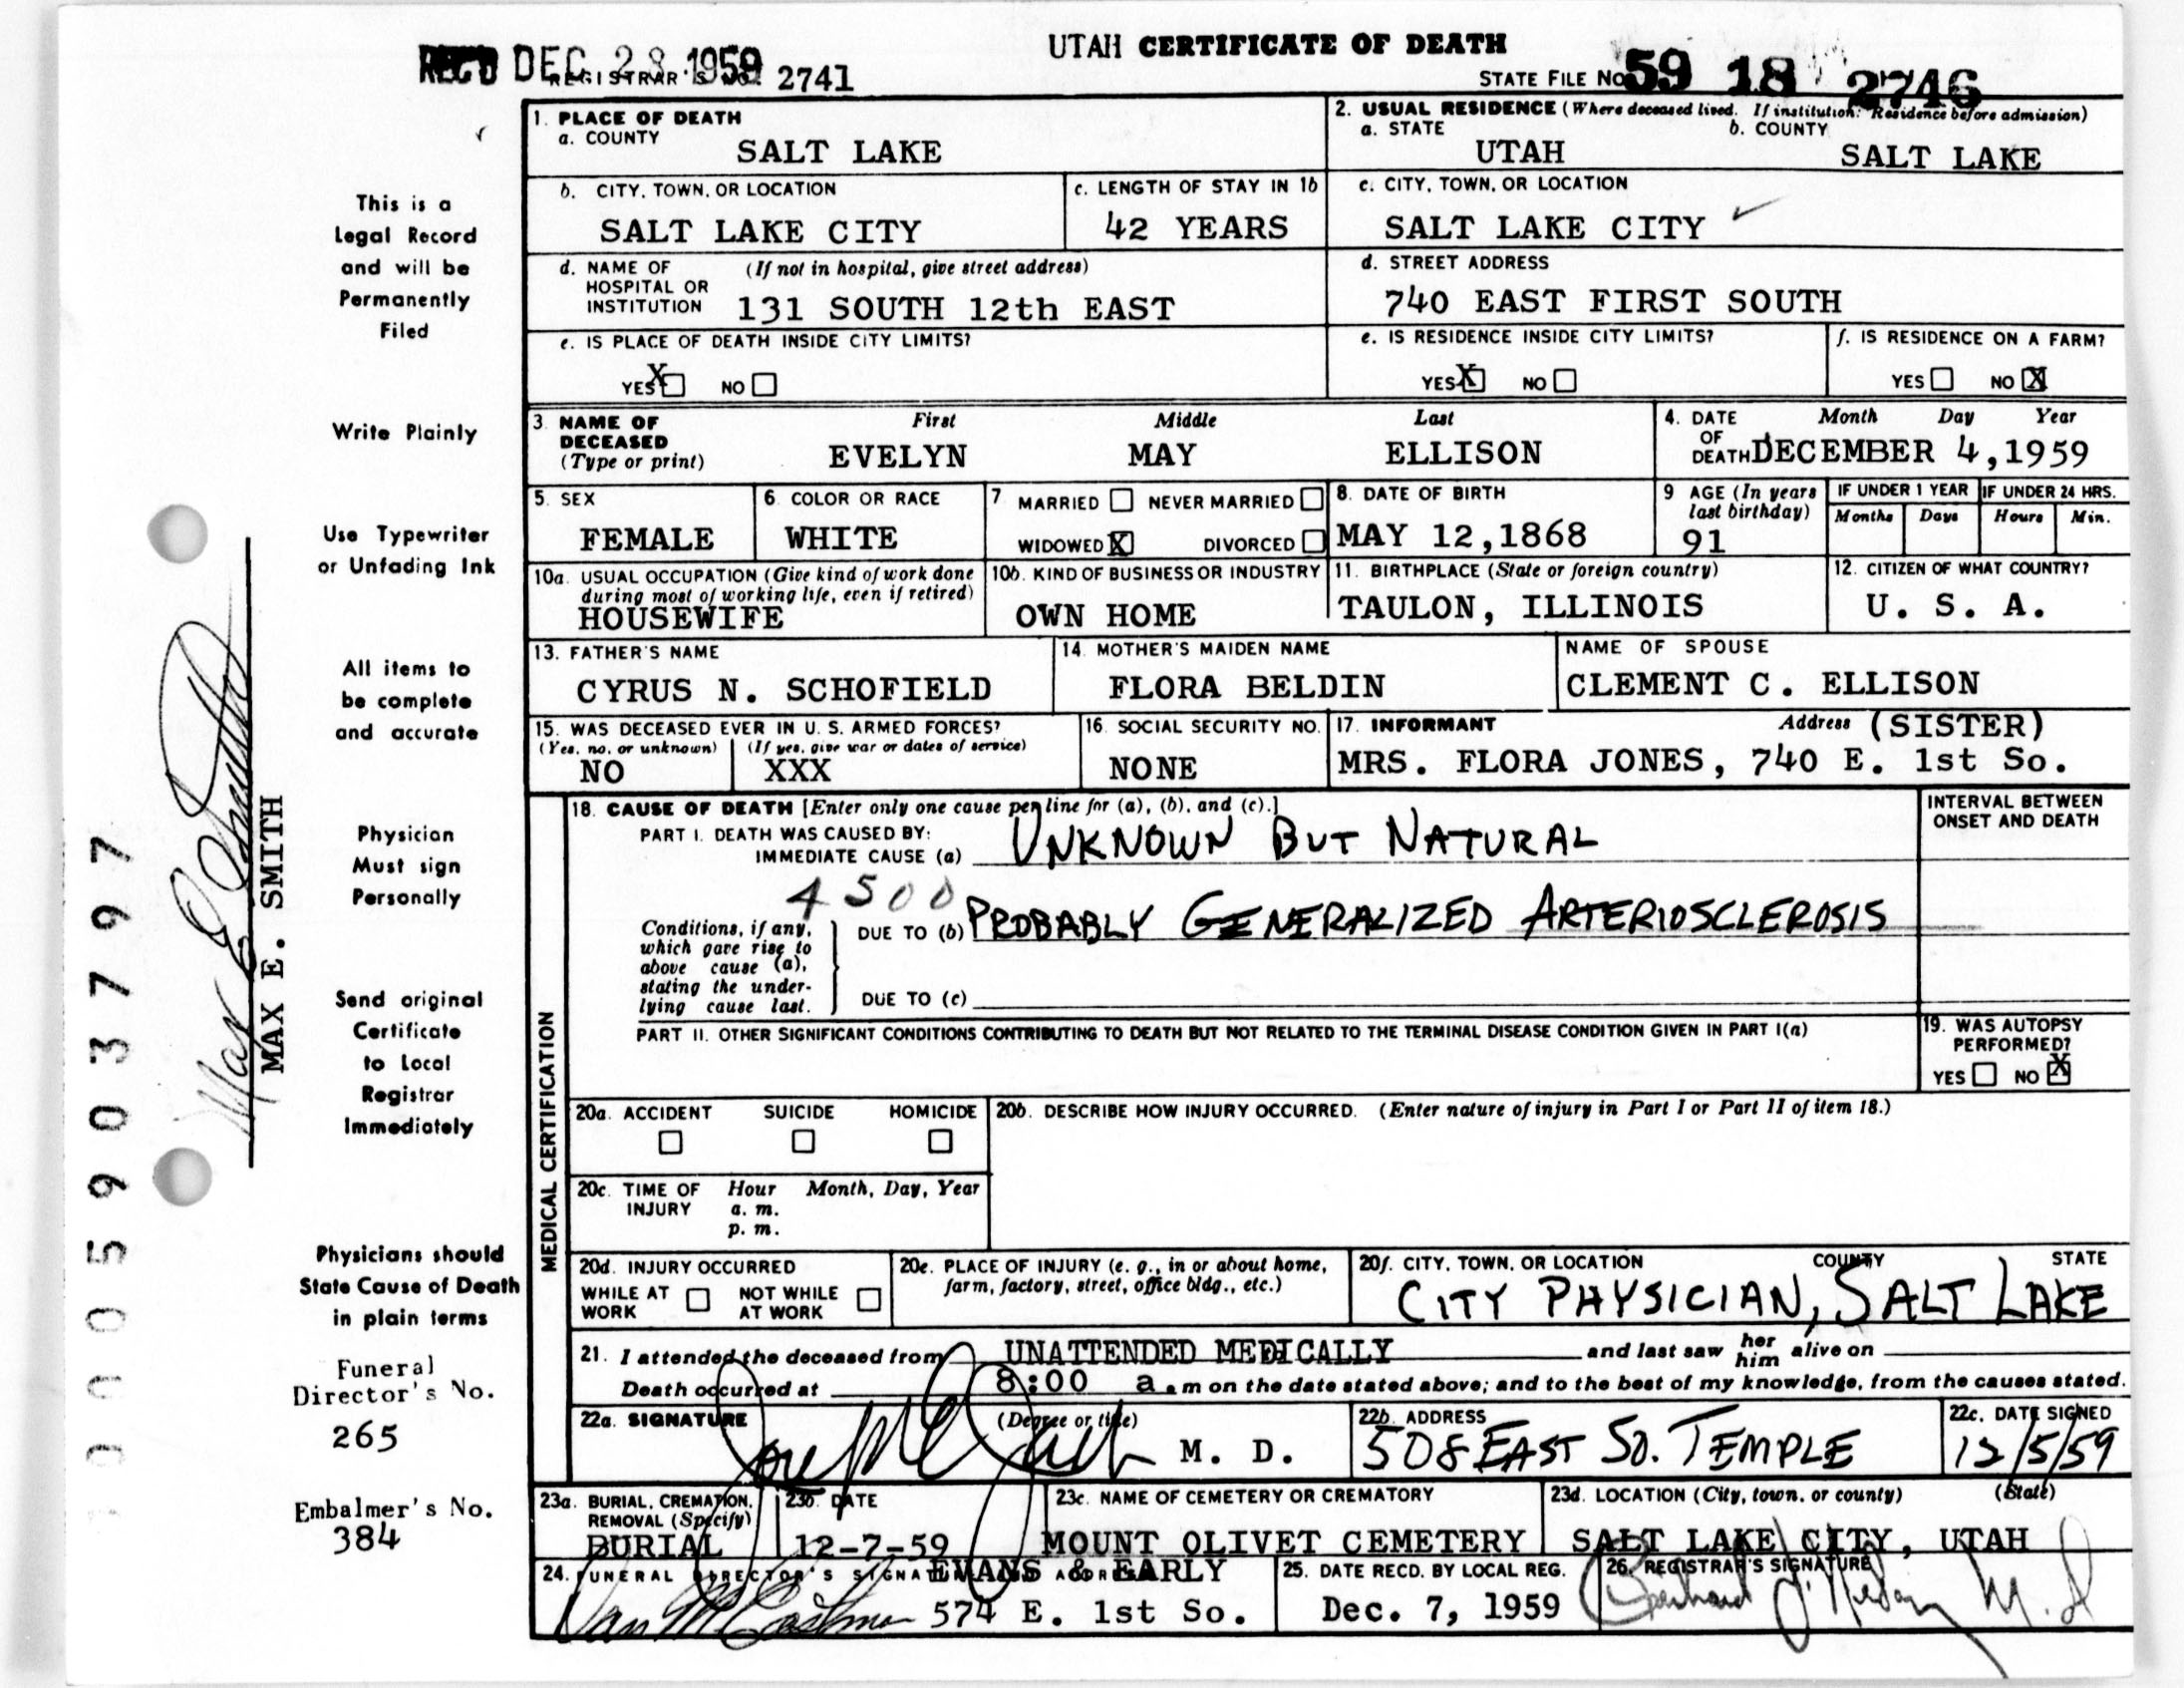 UTAH CERTIFICATE OF DEATH
REC'D DEC 28 1959
REGISTRAR'S 2741
STATE FILE No 59 18 2746
1. PLACE OF DEATH
a. COUNTY
SALT LAKE
2. USUAL RESIDENCE (Where deceased lived. If institution: Residence before admission)
a. STATE b. COUNTY
UTAH SALT LAKE
b. CITY, TOWN, OR LOCATION
SALT LAKE CITY
c. LENGTH OF STAY IN 1b
42 YEARS
c. CITY, TOWN, OR LOCATION
SALT LAKE CITY
d. NAME OF HOSPITAL OR INSTITUTION (If not in hospital, give street address)
131 SOUTH 12th EAST
d. STREET ADDRESS
740 EAST FIRST SOUTH
e. IS PLACE OF DEATH INSIDE CITY LIMITS?
YES X NO
e. IS RESIDENCE INSIDE CITY LIMITS?
YES X NO
f. IS RESIDENCE ON A FARM?
YES NO X
3. NAME OF DECEASED (Type or print)
First Middle Last
EVELYN MAY ELLISON
4. DATE OF DEATH Month Day Year
DECEMBER 4,1959
5. SEX
FEMALE
6. COLOR OR RACE
WHITE
7 MARRIED NEVER MARRIED
WIDOWED X DIVORCED
8. DATE OF BIRTH
MAY 12,1868
9 AGE (In years last birthday)
91
IF UNDER 1 YEAR IF UNDER 24 HRS.
Months Days Hours Min.
10a. USUAL OCCUPATION (Give kind of work done during most of working life, even if retired)
HOUSEWIFE
10b. KIND OF BUSINESS OR INDUSTRY
OWN HOME
11. BIRTHPLACE (State or foreign country)
TAULON, ILLINOIS
12. CITIZEN OF WHAT COUNTRY?
U. S. A.
13. FATHER'S NAME
CYRUS N. SCHOFIELD
14. MOTHER'S MAIDEN NAME
FLORA BELDIN
NAME OF SPOUSE
CLEMENT C. ELLISON
15. WAS DECEASED EVER IN U. S. ARMED FORCES?
(Yes, no, or unknown) (If yes, give war or dates of service)
NO XXX
16. SOCIAL SECURITY NO.
NONE
17. INFORMANT Address (SISTER)
MRS. FLORA JONES, 740 E. 1st So.
MEDICAL CERTIFICATION
18. CAUSE OF DEATH [Enter only one cause per line for (a), (b), and (c).]
INTERVAL BETWEEN ONSET AND DEATH
PART I. DEATH WAS CAUSED BY:
IMMEDIATE CAUSE (a) UNKNOWN BUT NATURAL
4500
Conditions, if any, which gave rise to above cause (a), stating the underlying cause last.
DUE TO (b) PROBABLY GENERALIZED ARTERIOSCLEROSIS
DUE TO (c)
PART II. OTHER SIGNIFICANT CONDITIONS CONTRIBUTING TO DEATH BUT NOT RELATED TO THE TERMINAL DISEASE CONDITION GIVEN IN PART I(a)
19. WAS AUTOPSY PERFORMED?
YES NO X
20a. ACCIDENT SUICIDE HOMICIDE
20b. DESCRIBE HOW INJURY OCCURRED. (Enter nature of injury in Part I or Part II of item 18.)
20c. TIME OF INJURY Hour Month, Day, Year
a. m.
p. m.
20d. INJURY OCCURRED
WHILE AT WORK NOT WHILE AT WORK
20e. PLACE OF INJURY (e. g., in or about home, farm, factory, street, office bldg., etc.)
20f. CITY, TOWN, OR LOCATION COUNTY STATE
CITY PHYSICIAN, SALT LAKE
21. I attended the deceased from UNATTENDED MEDICALLY and last saw her him alive on
Death occurred at 8:00 a.m on the date stated above; and to the best of my knowledge, from the causes stated.
22a. SIGNATURE (Degree or title)
M. D.
22b. ADDRESS
508 EAST SO. TEMPLE
22c. DATE SIGNED
12/5/59
23a. BURIAL, CREMATION, REMOVAL (Specify)
BURIAL
23b. DATE
12-7-59
23c. NAME OF CEMETERY OR CREMATORY
MOUNT OLIVET CEMETERY
23d. LOCATION (City, town, or county) (State)
SALT LAKE CITY, UTAH
24. FUNERAL DIRECTOR'S SIGNATURE ADDRESS
EVANS & EARLY
574 E. 1st So.
25. DATE RECD. BY LOCAL REG.
Dec. 7, 1959
26. REGISTRAR'S SIGNATURE
M.D
This is a
Legal Record
and will be
Permanently
Filed
Write Plainly
Use Typewriter
or Unfading Ink
All items to
be complete
and accurate
Physician
Must sign
Personally
Send original
Certificate
to Local
Registrar
Immediately
Physicians should
State Cause of Death
in plain terms
Funeral
Director's No.
265
Embalmer's No.
384
Max E Smith
MAX E. SMITH
005903797